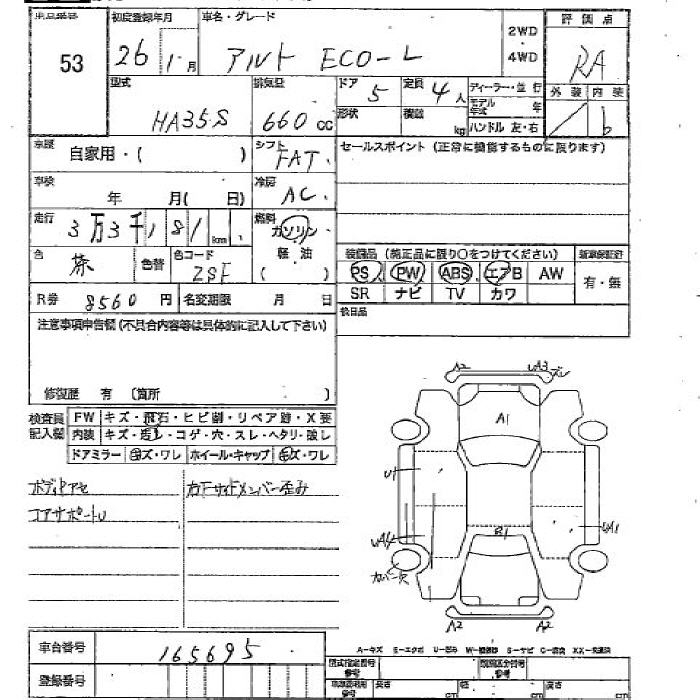 出品番号 53
初度登録年月 26 1月
車名・グレード アルト ECO-L
2WD
4WD
評価点 RA
型式 HA35S
排気量 660cc
ドア 5
定員 4人
形状
積載 kg
ディーラー・並行
モデル年式 年
ハンドル 左・右
外装 内装
b
車歴 自家用・( )
シフト FAT
セールスポイント (正常に機能するものに限ります)
車検 年 月( 日)
冷房 AC
走行 3万3千181km
燃料 ガソリン
軽油
( )
色
色替
色コード ZSF
装備品 (純正品に限り○をつけてください)
PS PW ABS エアB AW
SR ナビ TV カワ
新車保証書
有・無
R券 8560円
名変期限 月 日
後日品
注意事項申告欄(不具合内容等は具体的に記入して下さい)
修復歴 有 〔箇所 〕
検査員記入欄
FW キズ・飛石・ヒビ割・リペア跡・X要
内装 キズ・汚れ・コゲ・穴・スレ・ヘタリ・破レ
ドアミラー キズ・ワレ ホイール・キャップ キズ・ワレ
コアサポートU
右Fサイドメンバー歪み
A2
UA3 ズレ
A1
U1
UA4
UA1
B1
A2
A2
車台番号 165695
登録番号
A-キズ E-エクボ U-凹み W-補修跡 S-サビ C-腐食 XX-交換済
型式指定番号
類別区分番号
長さ cm
幅 cm
高さ cm